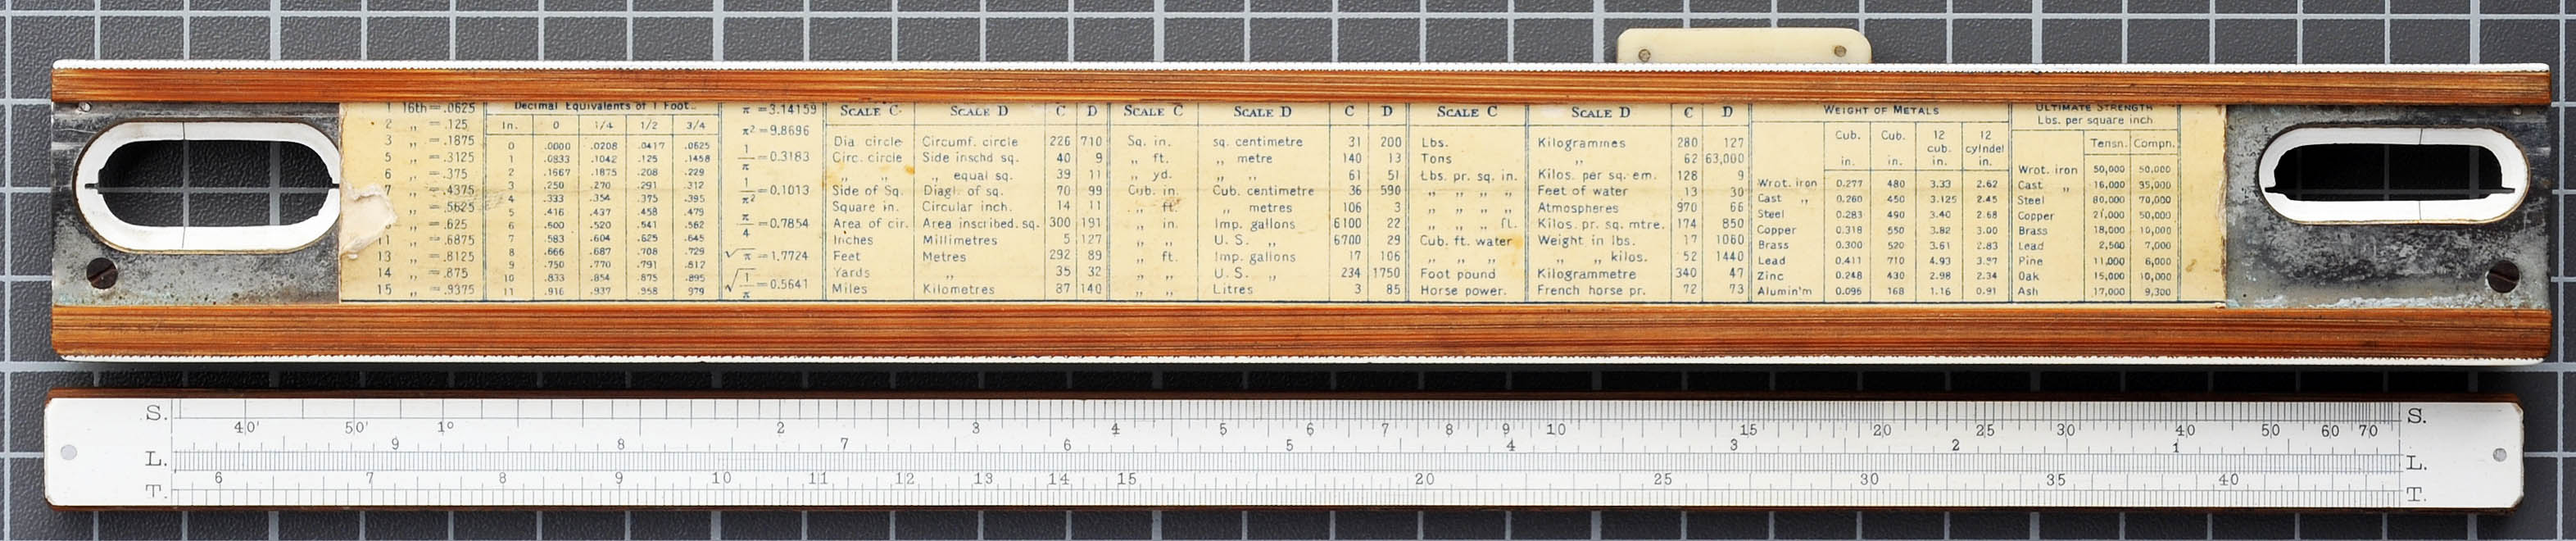 1 16th = .0625
2 „ = .125
3 „ = .1875
5 „ = .3125
6 „ = .375
7 „ = .4375
„ = .5625
„ = .625
11 „ = .6875
13 „ = .8125
14 „ = .875
15 „ = .9375
Decimal Equivalents of 1 Foot.
In. 0 1/4 1/2 3/4
0 .0000 .0208 .0417 .0625
1 .0833 .1042 .125 .1458
2 .1667 .1875 .208 .229
3 .250 .270 .291 .312
4 .333 .354 .375 .395
5 .416 .437 .458 .479
6 .500 .520 .541 .562
7 .583 .604 .625 .645
8 .666 .687 .708 .729
9 .750 .770 .791 .812
10 .833 .854 .875 .895
11 .916 .937 .958 979
π = 3.14159
π² = 9.8696
1/π = 0.3183
1/π² = 0.1013
π/4 = 0.7854
√π = 1.7724
√1/π = 0.5641
SCALE C SCALE D C D
Dia. circle Circumf. circle 226 710
Circ. circle Side inschd sq. 40 9
„ „ „ equal sq. 39 11
Side of Sq. Diagl. of sq. 70 99
Square in. Circular inch. 14 11
Area of cir. Area inscribed. sq. 300 191
Inches Millimetres 5 127
Feet Metres 292 89
Yards „ 35 32
Miles Kilometres 87 140
SCALE C SCALE D C D
Sq. in. sq. centimetre 31 200
„ ft. „ metre 140 13
„ yd. „ „ 61 51
Cub. in. Cub. centimetre 36 590
„ ft. „ metres 106 3
„ in. Imp. gallons 6100 22
„ „ U. S. „ 6700 29
„ ft. Imp. gallons 17 106
„ „ U. S. „ 234 1750
„ „ Litres 3 85
SCALE C SCALE D C D
Lbs. Kilogrammes 280 127
Tons „ 62 63,000
Lbs. pr. sq. in. Kilos. per sq. cm. 128 9
„ „ „ „ Feet of water 13 30
„ „ „ „ Atmospheres 970 66
„ „ „ ft. Kilos. pr. sq. mtre. 174 850
Cub. ft. water Weight in lbs. 17 1060
„ „ „ „ „ kilos. 52 1440
Foot pound Kilogrammetre 340 47
Horse power. French horse pr. 72 73
WEIGHT OF METALS
Cub. in. Cub. in. 12 cub. in. 12 cylndel in.
Wrot. iron 0.277 480 3.33 2.62
Cast „ 0.260 450 3.125 2.45
Steel 0.283 490 3.40 2.68
Copper 0.318 550 3.82 3.00
Brass 0.300 520 3.61 2.83
Lead 0.411 710 4.93 3.97
Zinc 0.248 430 2.98 2.34
Alumin'm 0.096 168 1.16 0.91
ULTIMATE STRENGTH
Lbs. per square inch
Tensn. Compn.
Wrot. iron 50,000 50,000
Cast „ 16,000 95,000
Steel 80,000 70,000
Copper 21,000 50,000
Brass 18,000 10,000
Lead 2,500 7,000
Pine 11,000 6,000
Oak 15,000 10,000
Ash 17,000 9,300
S. 40' 50' 1° 2 3 4 5 6 7 8 9 10 15 20 25 30 40 50 60 70 S.
L. 9 8 7 6 5 4 3 2 1 L.
T. 6 7 8 9 10 11 12 13 14 15 20 25 30 35 40 T.